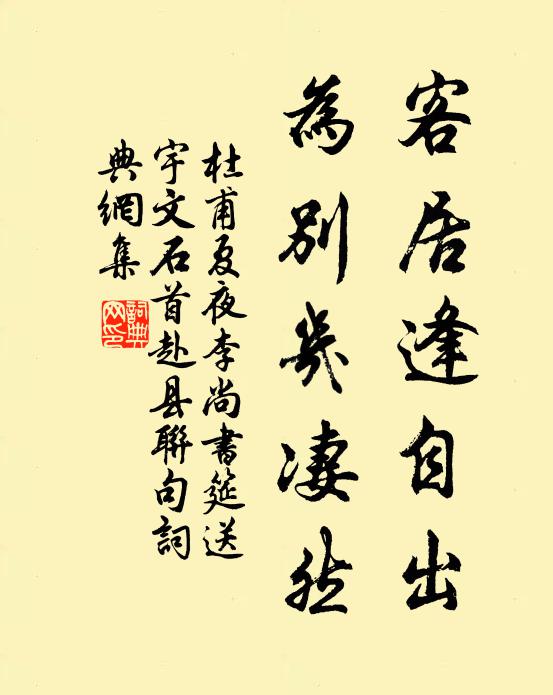 客居逢自出
為別幾凄然
杜甫夏夜李尚書筵送
宇文石首赴县聯句詞
典網集
詞典网印